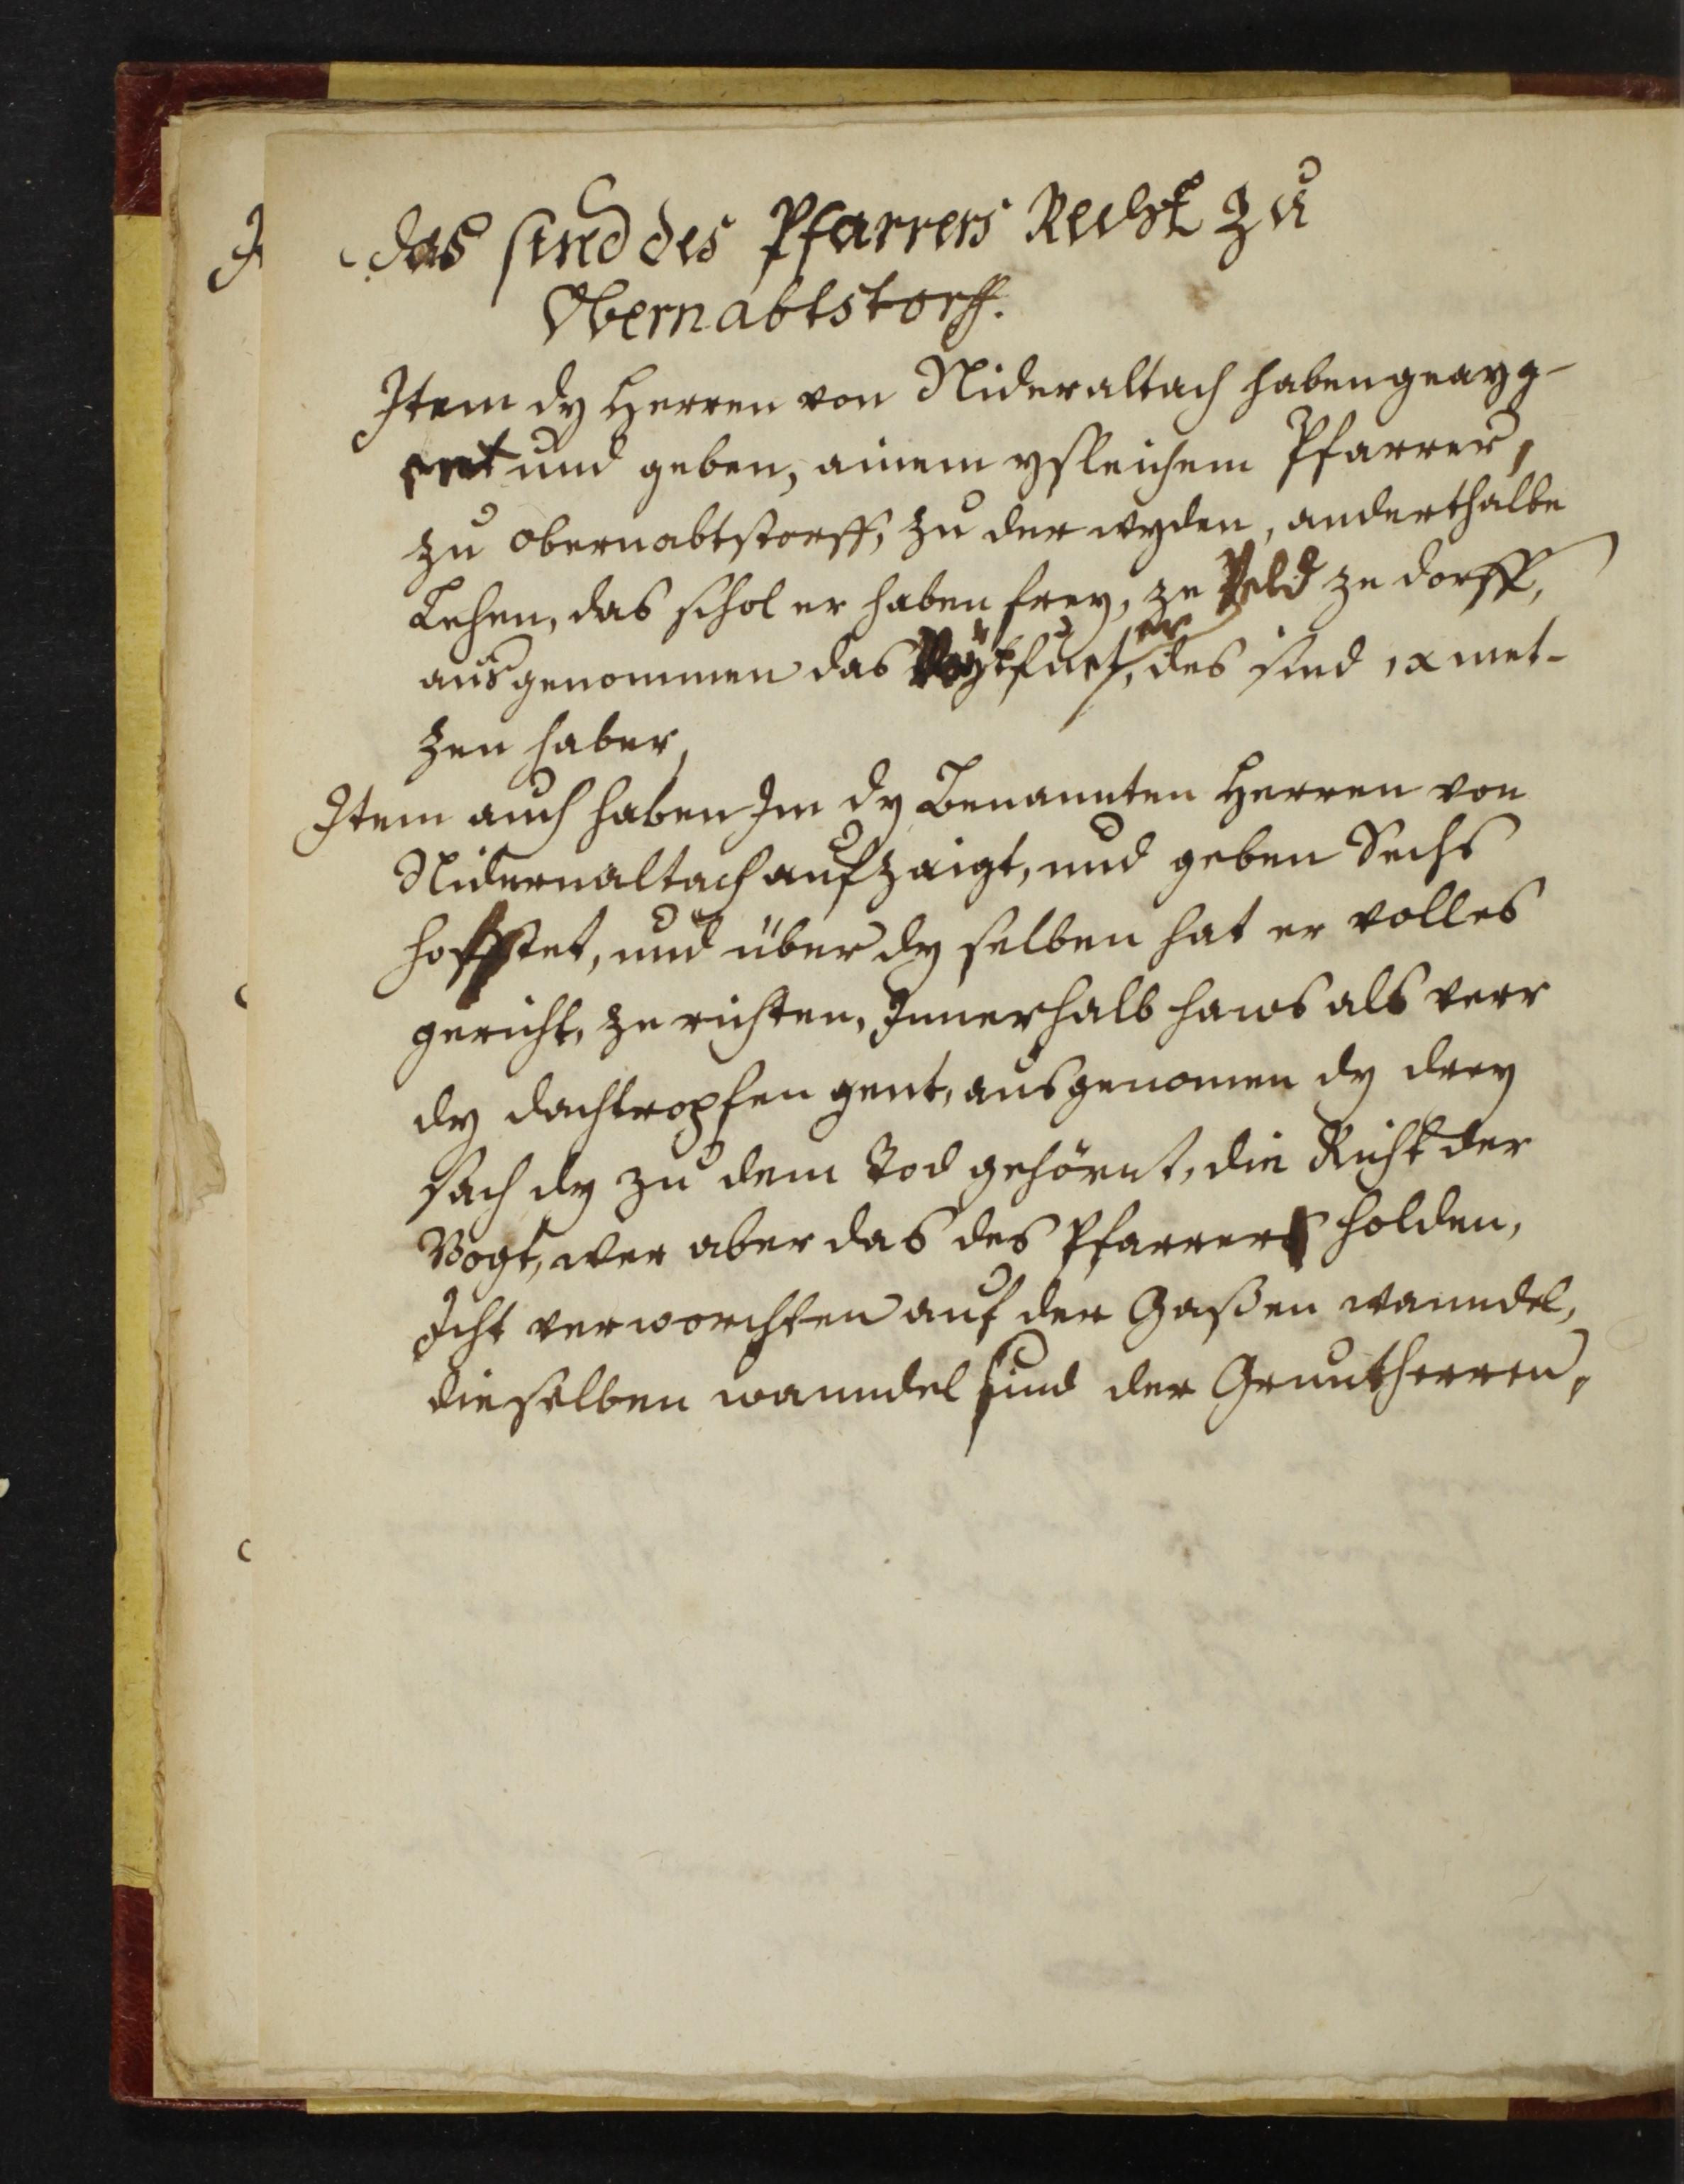 das sind des Pfarrers Recht zu
Obernabtstorff.
Item dy Herren von Nideraltach haben geayg-
ent und geben, ainem ysleichem Pfarrer,
zu Obernabtstorff, zu der wyden, anderthalbe
Lehen, das schol er haben frey, ze Veld ze dorff,
ausgenommen das Vogtfuter, des sind ix met-
zen haber,
Item auch haben Im dy Benannten Herren von
Nidernaltach aufzaigt, und geben Sechs
hoffstet, und über dy selben hat er volles
gericht, ze richten, Innerhalb haws als verr
dy dachtropfen gent, ausgenomen dy drey
sach dy zu dem Tod gehörnt, die Richt der
Vogt, wer aber das des Pfarrers holden,
Icht verworchten auf der Gaßen wanndel,
dieselben wanndel sind der Gruntherren,